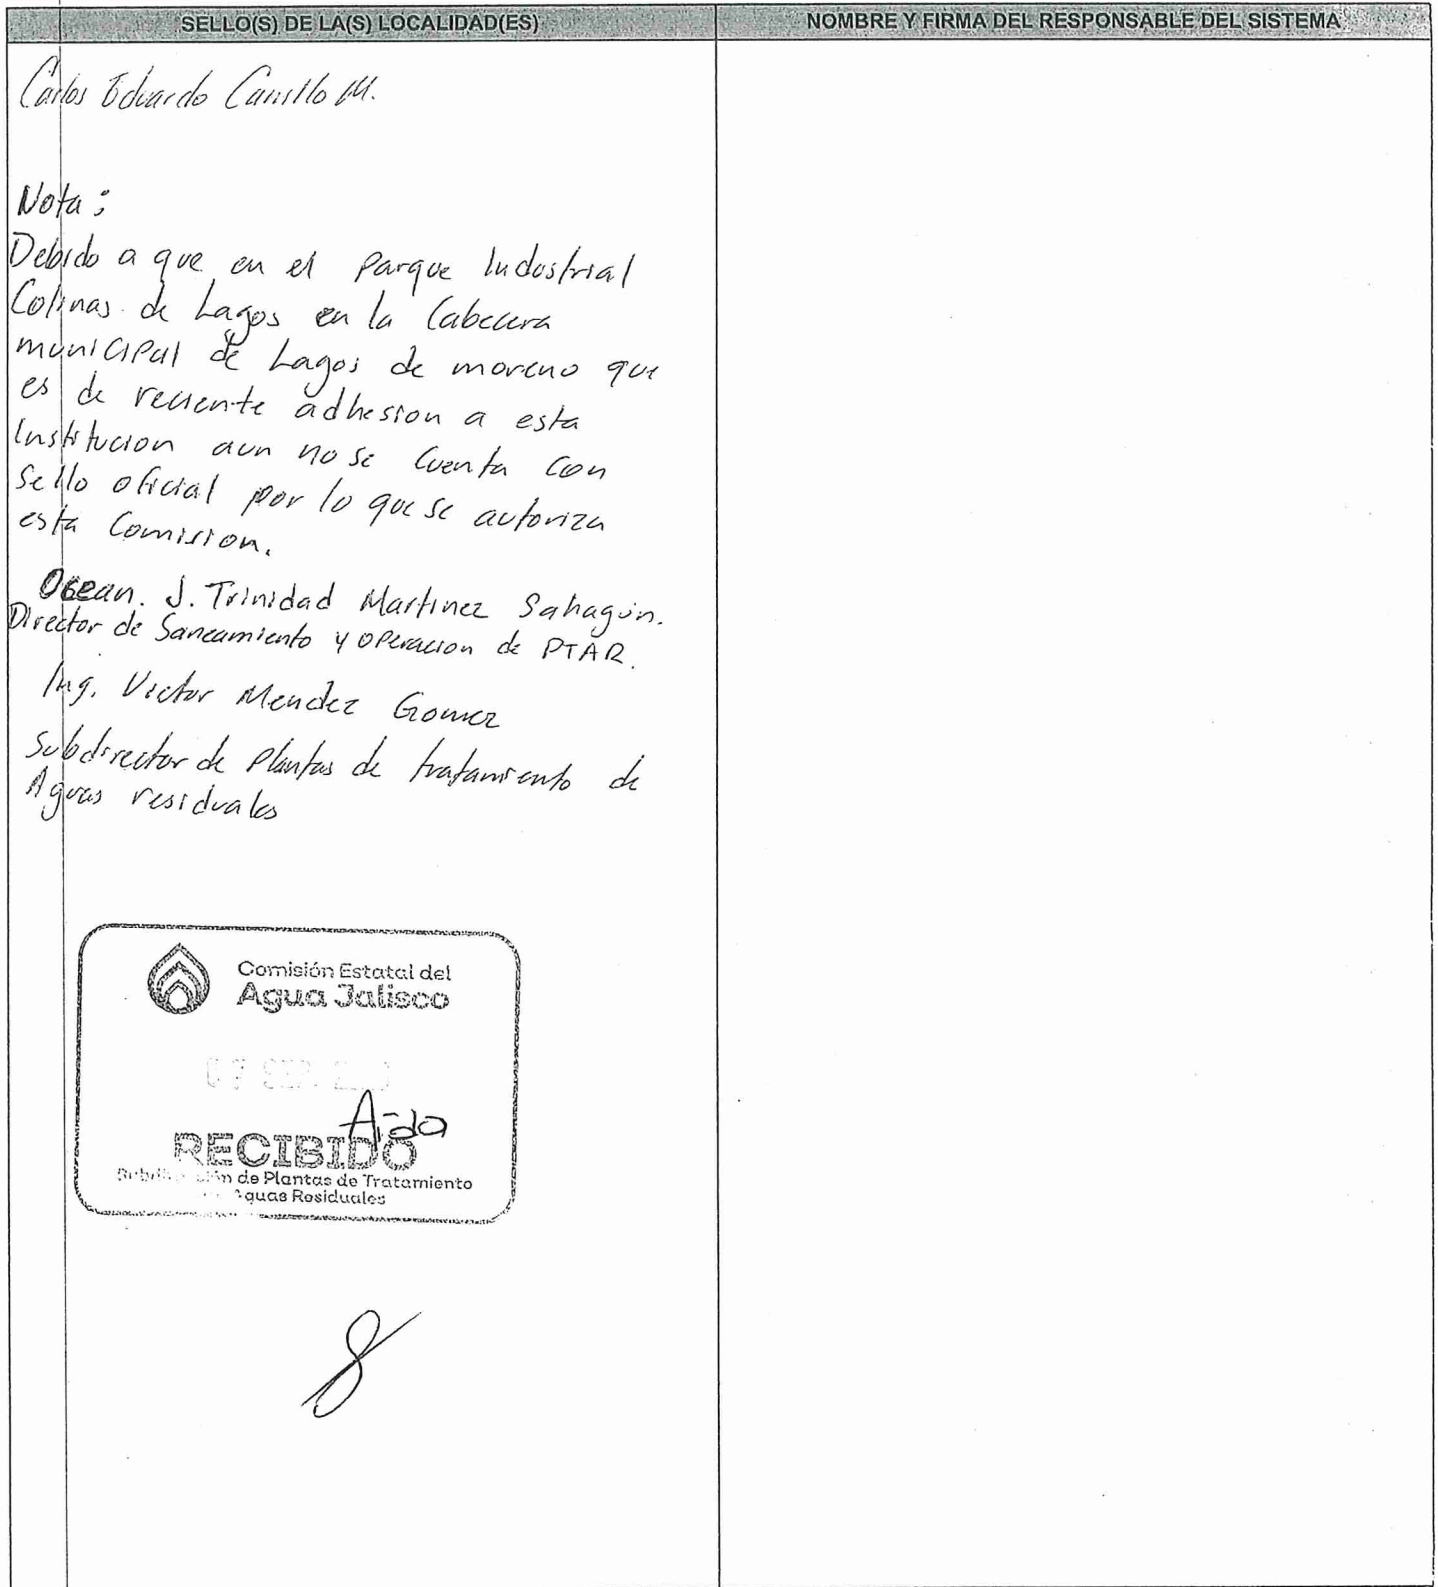 SELLO(S) DE LA(S) LOCALIDAD(ES)
NOMBRE Y FIRMA DEL RESPONSABLE DEL SISTEMA
Carlos Eduardo Carrillo M.
Nota:
Debido a que en el Parque Industrial
Colinas de Lagos en la Cabecera
municipal de Lagos de moreno que
es de reciente adhesion a esta
Institucion aun no se Cuenta Con
Sello oficial por lo que se autoriza
esta Comision.
Ocean. J. Trinidad Martinez Sahagún.
Director de Saneamiento y operacion de PTAR.
Ing. Victor Mendez Gomez
Subdirector de Plantas de tratamiento de
Aguas residuales
Comisión Estatal del
Agua Jalisco
07 SEP.
Aida
RECIBIDO
de Plantas de Tratamiento
Aguas Residuales